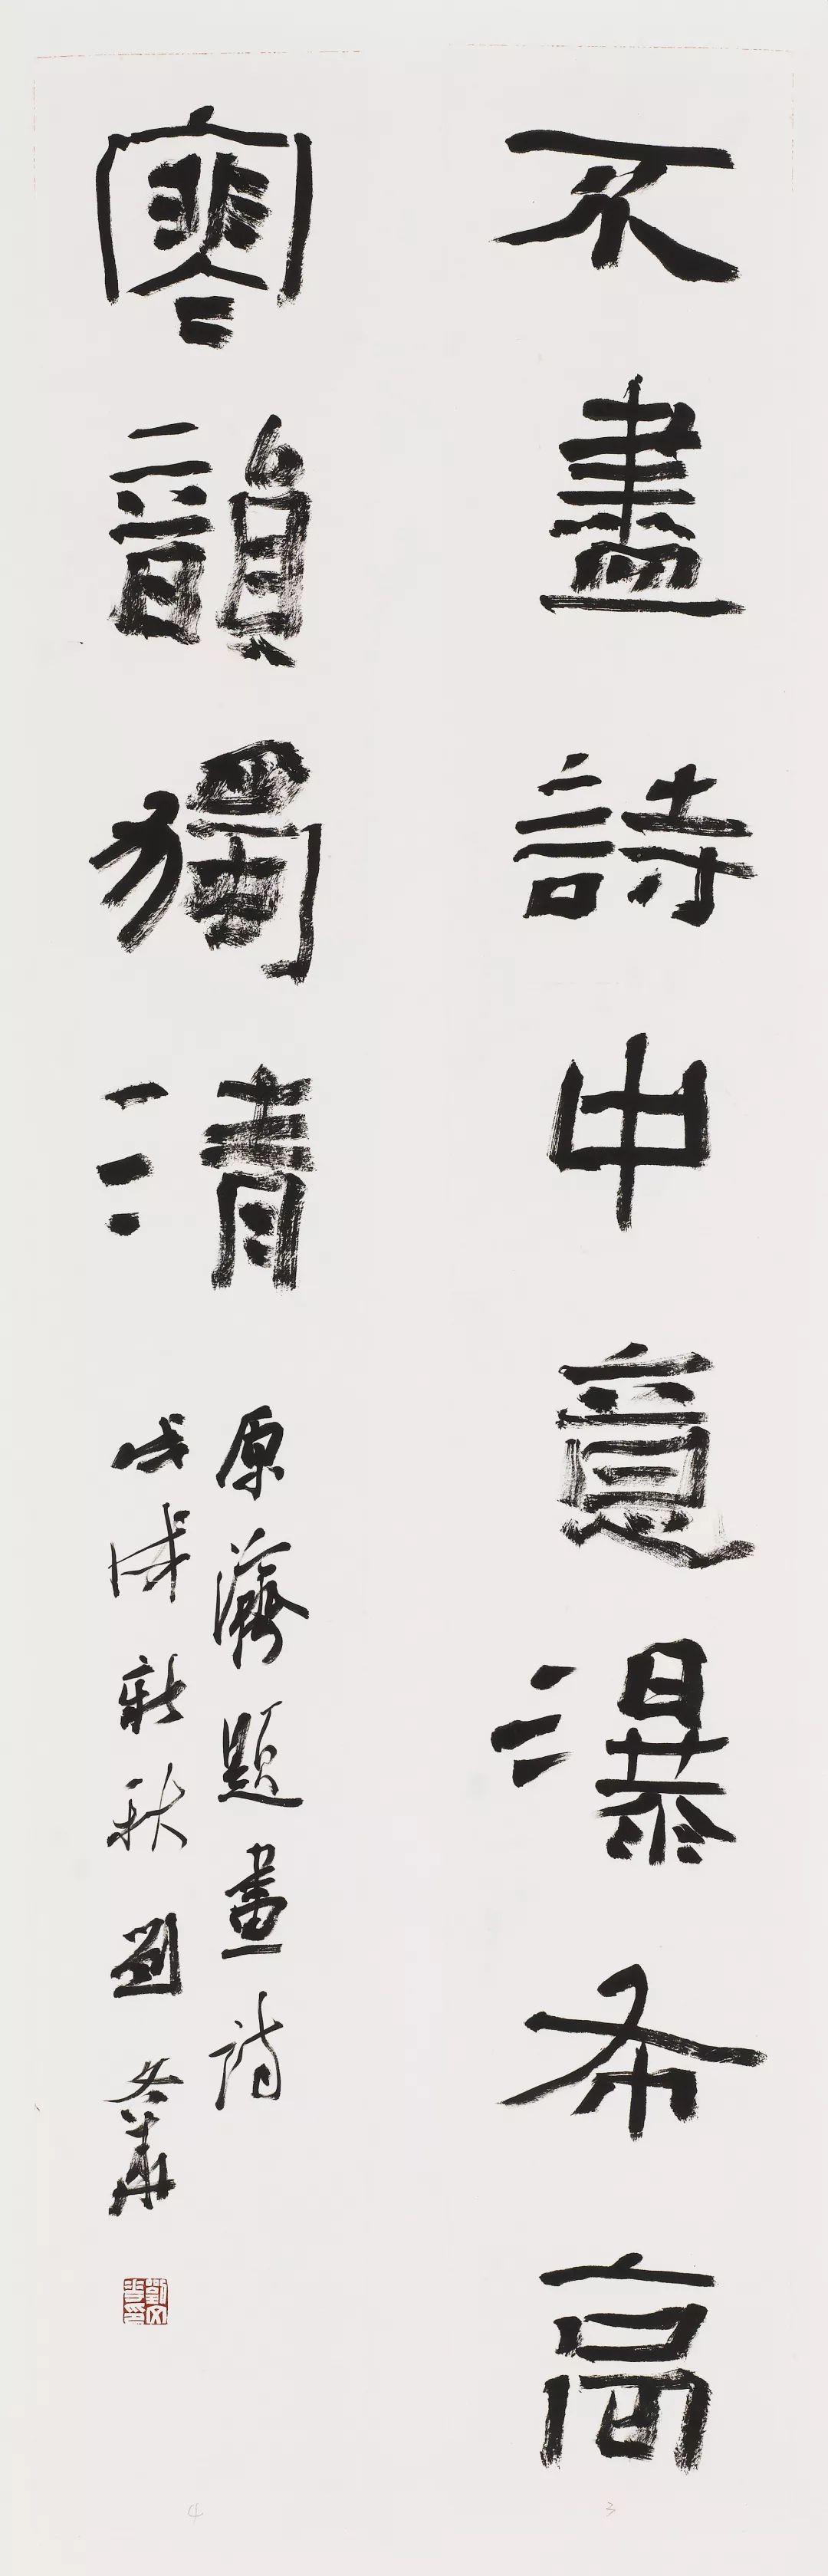 不盡詩中意瀑布高
寒韻獨清
原濟題畫詩
戊戌新秋劉文華
劉文華印
3
4